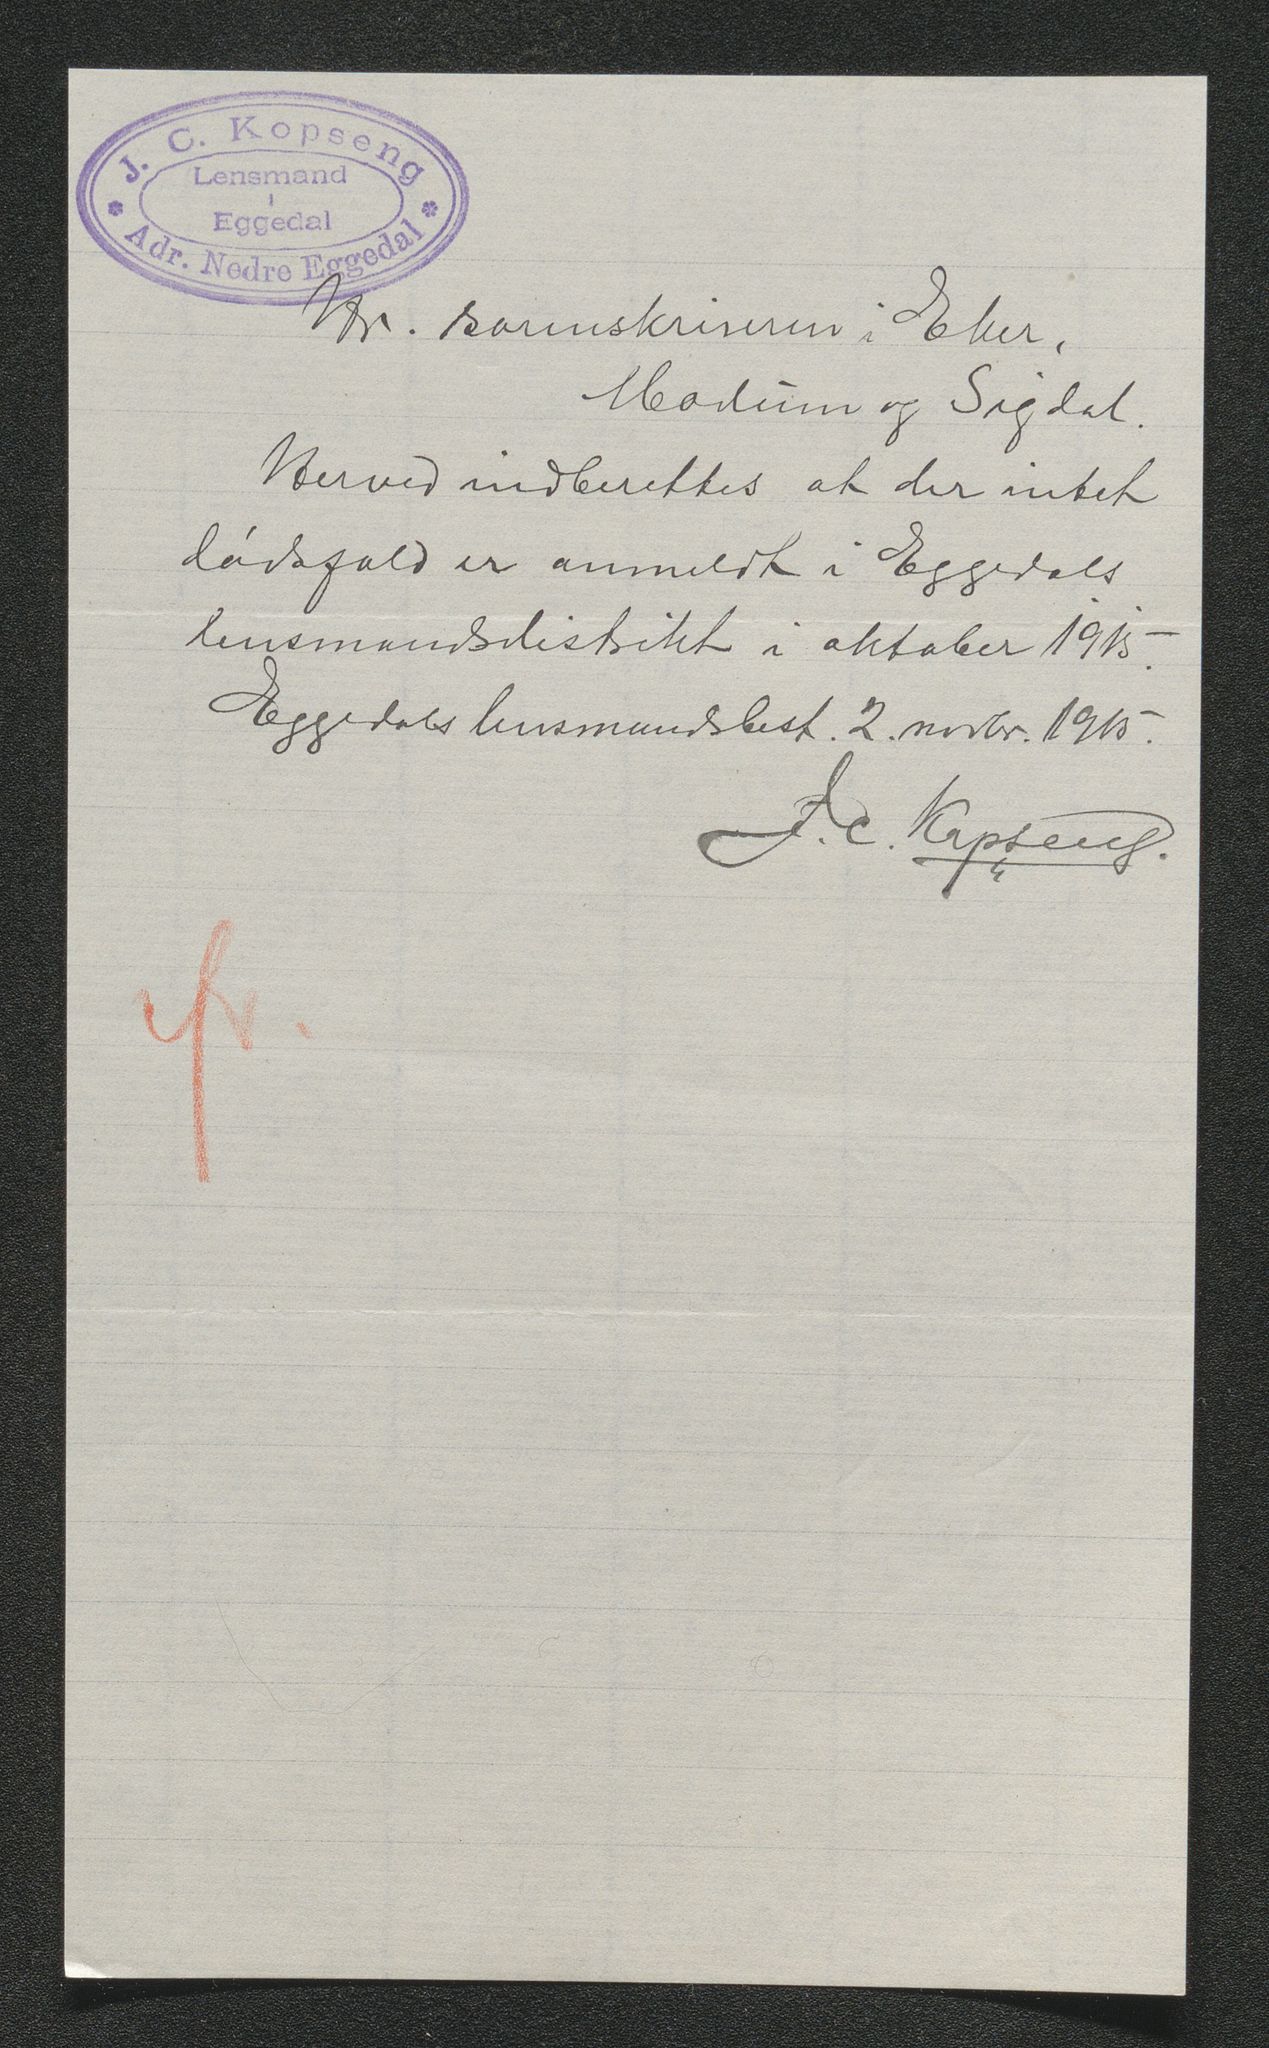 J. C. Kopseng
Lensmand
i
Eggedal
Adr. Nedre Eggedal
Hr. sorenskriveren i Eker,
Modum og Sigdal.
Herved indberettes at der intet
dödsfald er anmeldt i Eggedals
lensmandsdistrikt i oktober 1915.
Eggedals lensmandsbest. 2. novbr. 1915.
J. C. Kopseng.